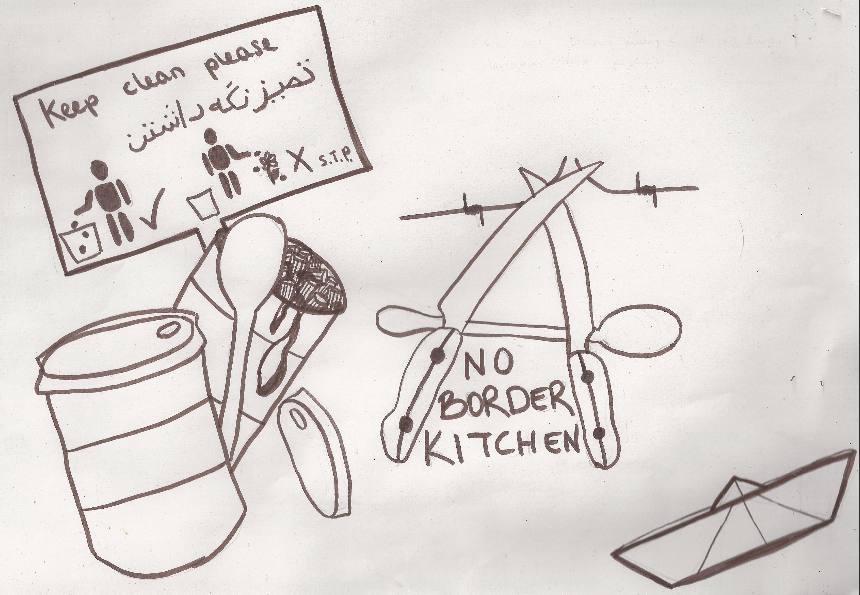 Keep clean please
تمیز نگه داشتن
X S.T.P.
NO
BORDER
KITCHEN